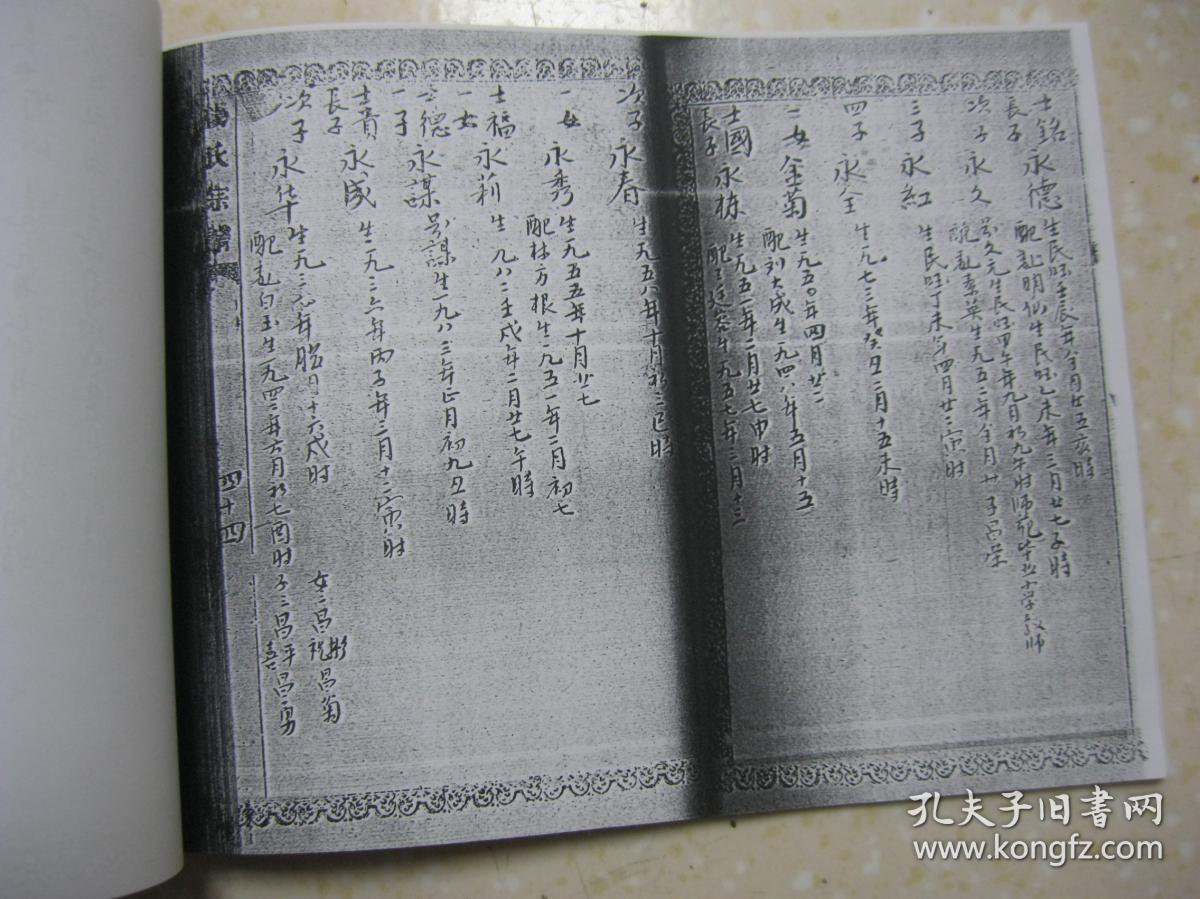 士銘 永德 生民国壬辰年 月廿五亥時
長子 配 明仙生民国乙未年三月廿七子時
次子 永久 另久元生民国 年九月初九午时师范毕业小学教师
配 生一九五二年 月廿 子昌荣
三子 永紅 生民国丁未年四月廿二寅时
四子 永全 生一九七三年癸丑二月十五未時
一女 金菊 生一九五〇年四月廿二
配刘大成生一九四八年五月十五
士國 永栋 生一九五一年二月廿七申时
長子 配 生一九五七年三月十三
次子 永春 生一九五八年十月初二巳時
一女 永秀 生一九五五年十月廿七
配林方根生一九五一年二月初七
士福 永莉 生一九八二壬戌年二月廿七午時
一女
士德 永謀 另謀生一九八三年正月初九丑時
一子
士貴 永成 生一九三六年丙子年二月十二寅时
長子
次子 永华 生一九三九年腊月十六戍时 女二昌彬昌菊
配 白玉生一九四二年六月初七酉时子三昌平昌勇昌喜
氏宗譜
四十四
孔夫子旧书网
www.kongfz.com